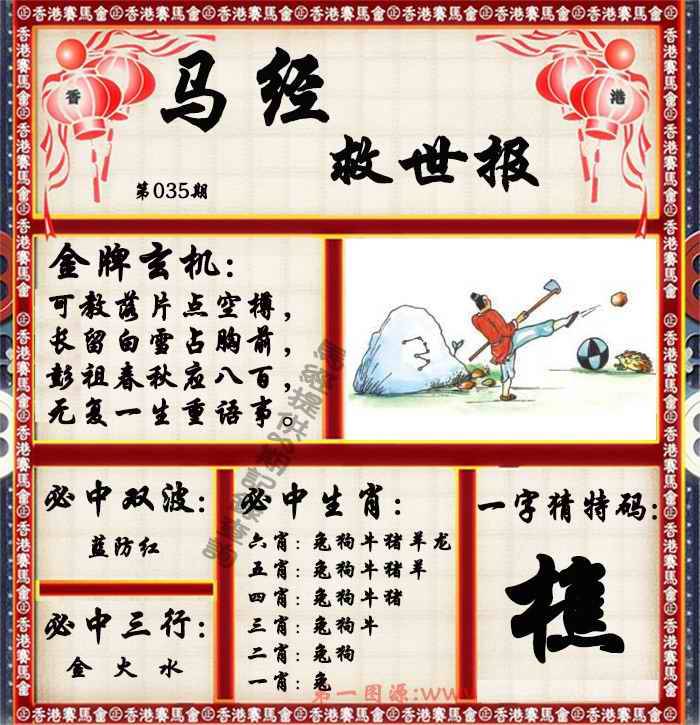 香港賽馬會
香 港
马经
救世报
第035期
金牌玄机：
可教落片点空樽，
长留白雪占胸前，
彭祖春秋应八百，
无复一生重语事。
必中双波：
蓝防红
必中三行：
金 火 水
必中生肖：
六肖：兔狗牛猪羊龙
五肖：兔狗牛猪羊
四肖：兔狗牛猪
三肖：兔狗牛
二肖：兔狗
一肖：兔
一字猜特码：
樵
第一图源:www